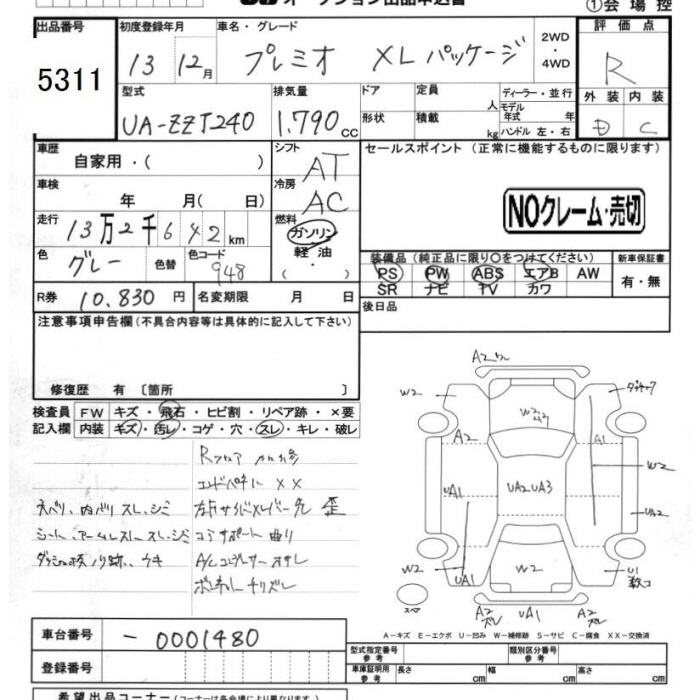 オークション出品申込書
①会場控
出品番号
5311
初度登録年月
13 12月
車名・グレード
プレミオ XLパッケージ
2WD・4WD
評価点
R
型式
UA-ZZT240
排気量
1,790cc
ドア
形状
定員 人
積載 kg
ディーラー・並行
モデル年式 年
ハンドル 左・右
外装 内装
D C
車歴
自家用・( )
シフト
AT
車検
年 月( 日)
冷房
AC
走行
13万2千642km
燃料
ガソリン
軽油
色
グレー
色替
色コード
948
R券 10,830円
名変期限 月 日
セールスポイント (正常に機能するものに限ります)
NOクレーム・売切
装備品(純正品に限り○をつけてください)
PS PW ABS エアB AW
SR ナビ TV カワ
新車保証書
有・無
後日品
注意事項申告欄(不具合内容等は具体的に記入して下さい)
修復歴 有〔箇所 〕
検査員記入欄
FW キズ・飛石・ヒビ割・リペア跡・×要
内装 キズ・汚レ・コゲ・穴・スレ・キレ・破レ
Rフロア
エンドパネル XX
天ベリ、内バリ スレ、シミ
左右サイドメンバー先 歪
シート、アームレスト スレ、シミ
コアサポート 曲り
ダッシュ
A/Cコンデンサー
A2
W2
W2
A2
A1
W2
UA1
UA2UA3
UA2
W2
UA1
W2
U1
スペア
A2
UA1
A2
A-キズ E-エクボ U-凹み W-補修跡 S-サビ C-腐食 XX-交換済
車台番号
-0001480
登録番号
型式指定番号 参考
類別区分番号 参考
車庫証明用 参考
長さ cm
幅 cm
高さ cm
希望出品コーナー(コーナーは各会場により異なります)